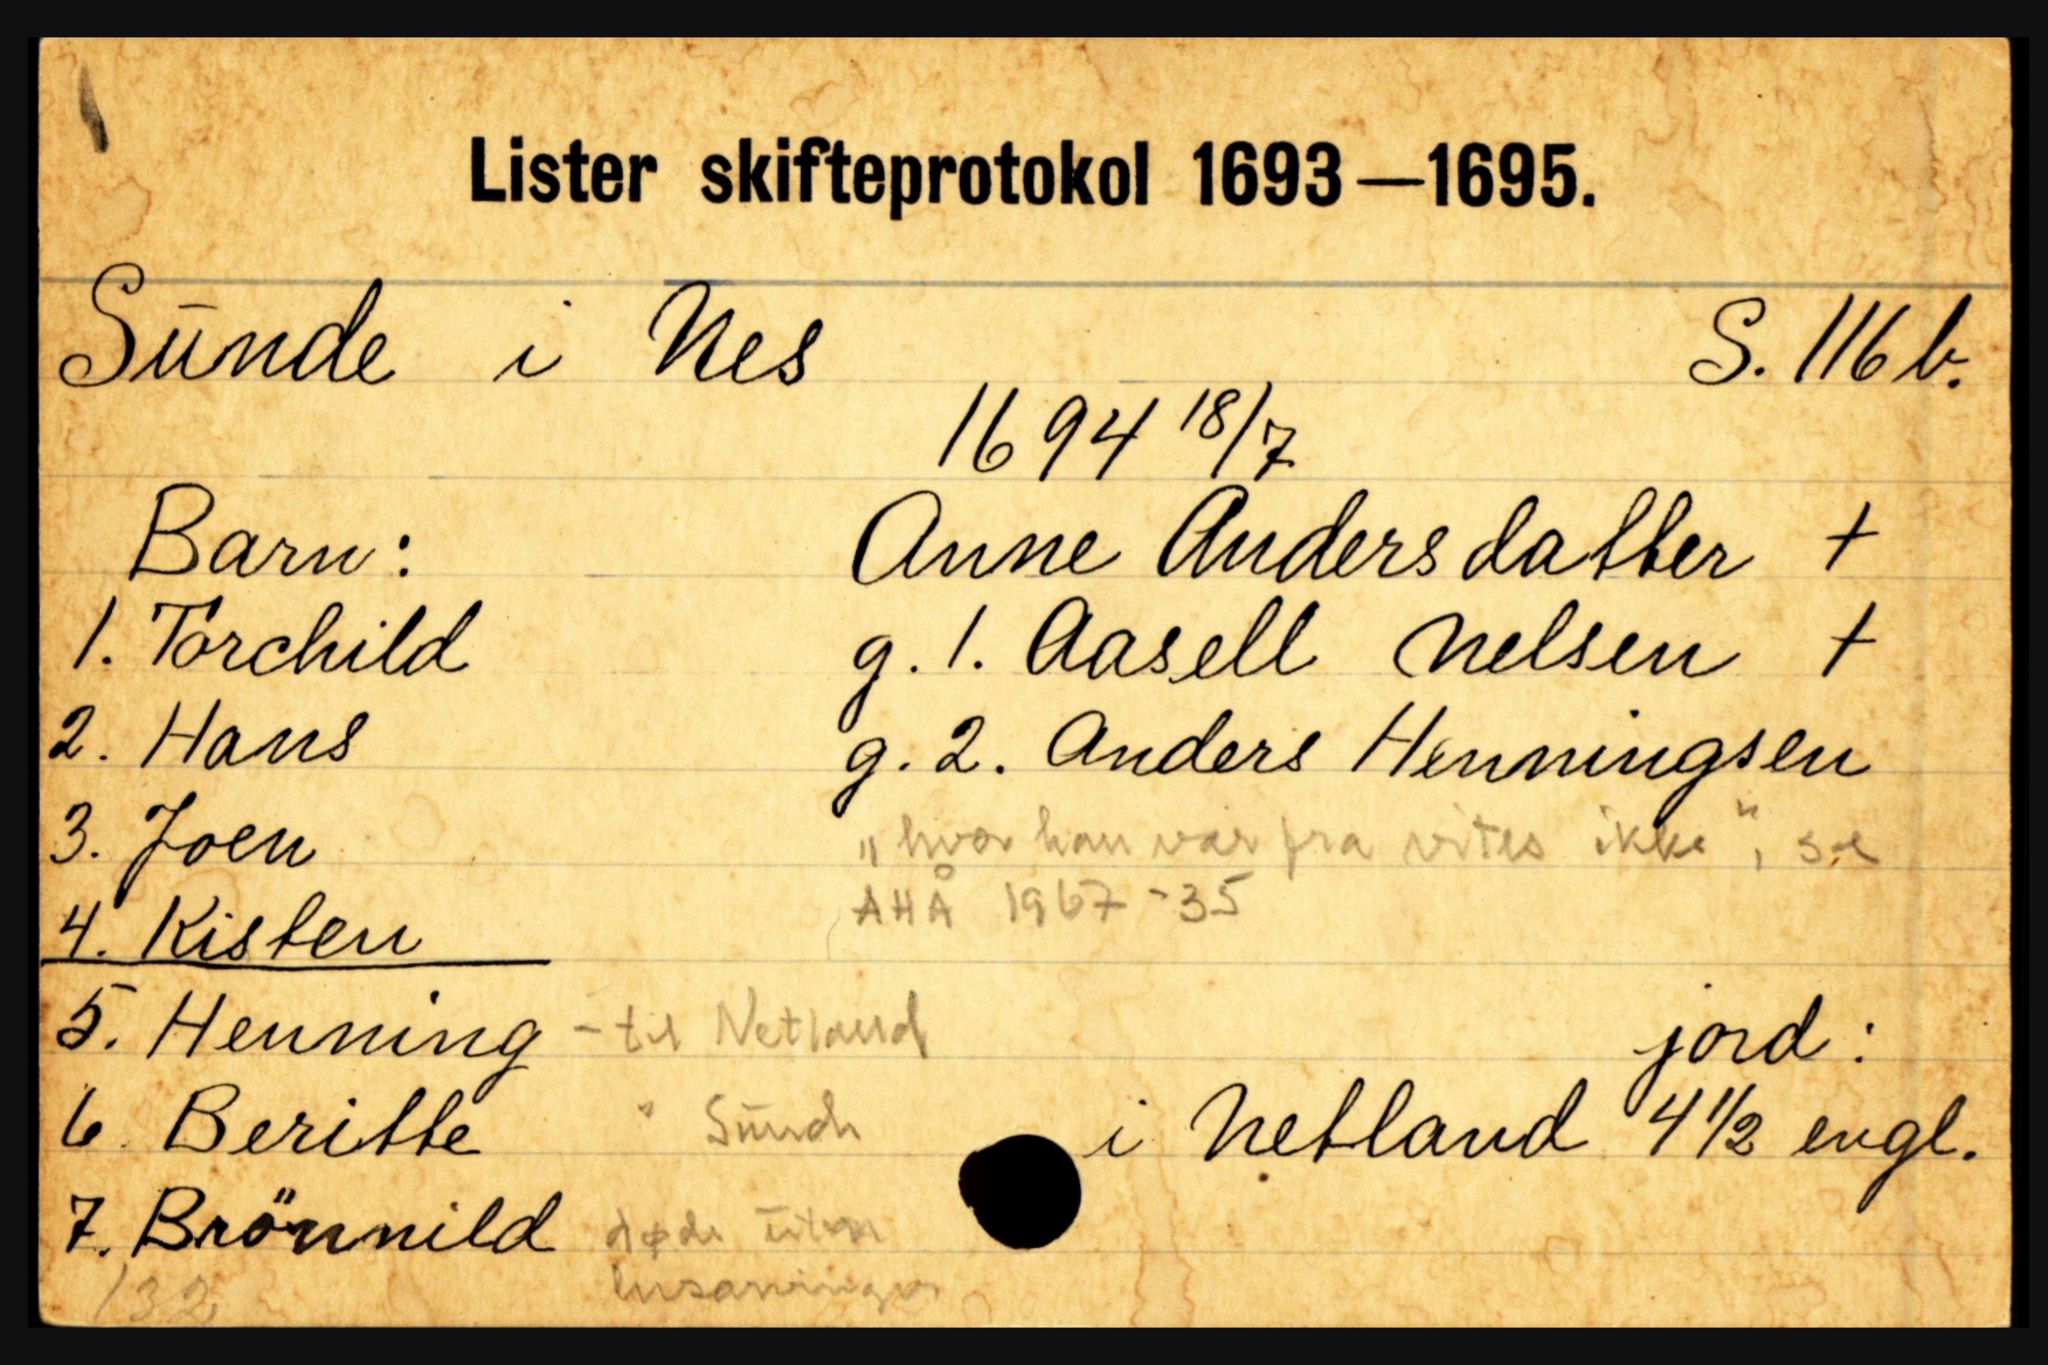 Lister skifteprotokol 1693—1695.
Sūnde i Nes S. 116 b.
1694 18/7
Barn: Anne Andersdatter +
1. Torchild g. 1. Aasell Nelsen +
2. Hans g. 2. Anders Henningsen
3. Joen „hvor han var fra vites ikke", se
4. Kisten AHÅ 1967-35
5. Henning - til Netland jord:
6. Beritte " Sūnde i Netland 4 1/2 engl.
7. Brönnild døde ūten
132 livsarvinger